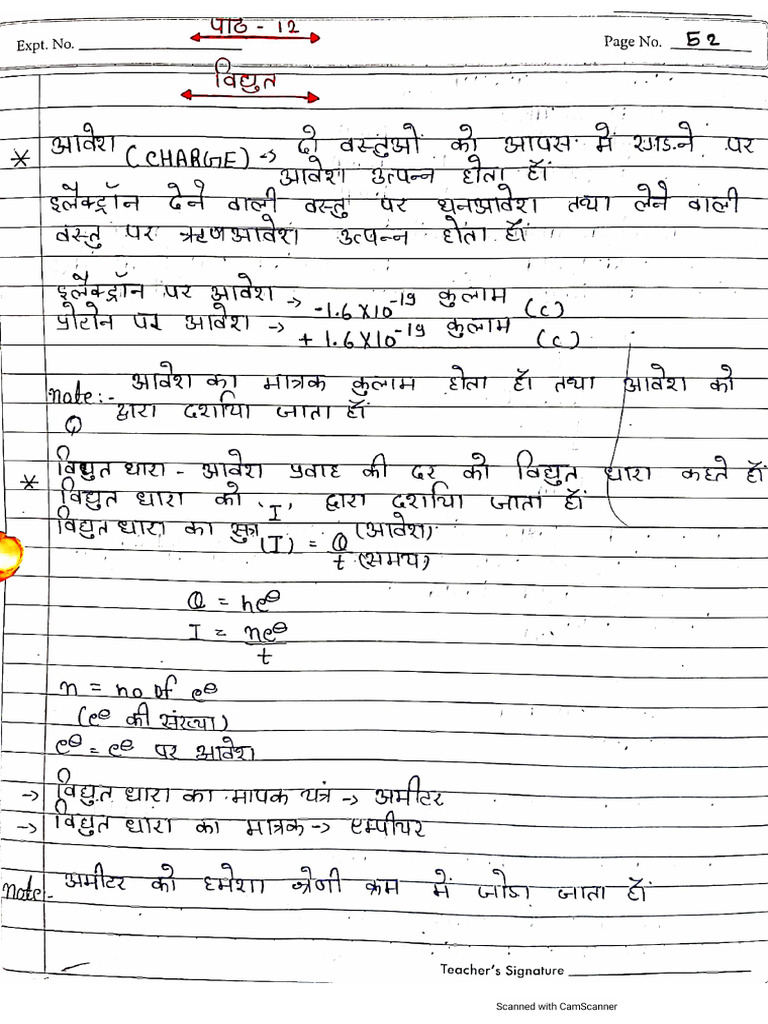 पाठ - 12
Expt. No.
Page No. 52
विद्युत
* आवेश (CHARGE) → दो वस्तुओं को आपस में रगड़ने पर
आवेश उत्पन्न होता हॉ
इलैक्ट्रॉन देने वाली वस्तु पर धनआवेश तथा लेने वाली
वस्तु पर ऋणआवेश उत्पन्न होता हॉ
इलैक्ट्रॉन पर आवेश → -1.6X10⁻¹⁹ कुलाम (C)
प्रोटोन पर आवेश → + 1.6X10⁻¹⁹ कुलाम (C)
note:- आवेश का मात्रक कुलाम होता हॉ तथा आवेश को
Q द्वारा दर्शाया जाता हॉ
* विद्युत धारा - आवेश प्रवाह की दर को विद्युत धारा कहते हॉ
विद्युत धारा को 'I' द्वारा दर्शाया जाता हॉ
विद्युत धारा का सुत्र (I) = Q (आवेश)
t (समय)
Q = ne⊖
I = ne⊖
t
n = no of e⊖
(e⊖ की संख्या)
e⊖ = e⊖ पर आवेश
→ विद्युत धारा का मापक यंत्र → अमीटर
→ विद्युत धारा का मात्रक → एम्पीयर
note:- अमीटर को हमेशा श्रेणी क्रम में जोडा जाता हॉ
Teacher's Signature
Scanned with CamScanner